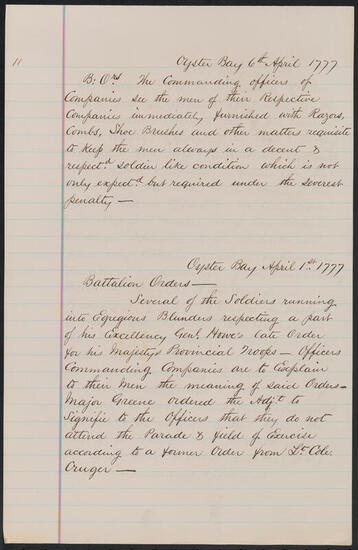 11
Oyster Bay 6th April 1777
B: Ors The Commanding officers of
Companies see the men of their Respective
Companies immediately furnished with Razors,
Combs, Shoe Brushes and other matters requisite
to keep the men always in a decent &
respect.d soldier like condition which is not
only expect.d but required under the severest
penalty —
Oyster Bay April 1st 1777
Battalion Orders —
Several of the Soldiers running
into Egregious Blunders respecting a part
of his Excellency Genl. Howe's late Order
for his Majestys Provincial Troops — Officers
Commanding Companies are to Explain
to their Men the meaning of said Orders —
Major Greene ordered the Adjt to
Signifie to the Officers that they do not
attend the Parade & field of Exercise
according to a former Order from Lt Cole.
Cruger —